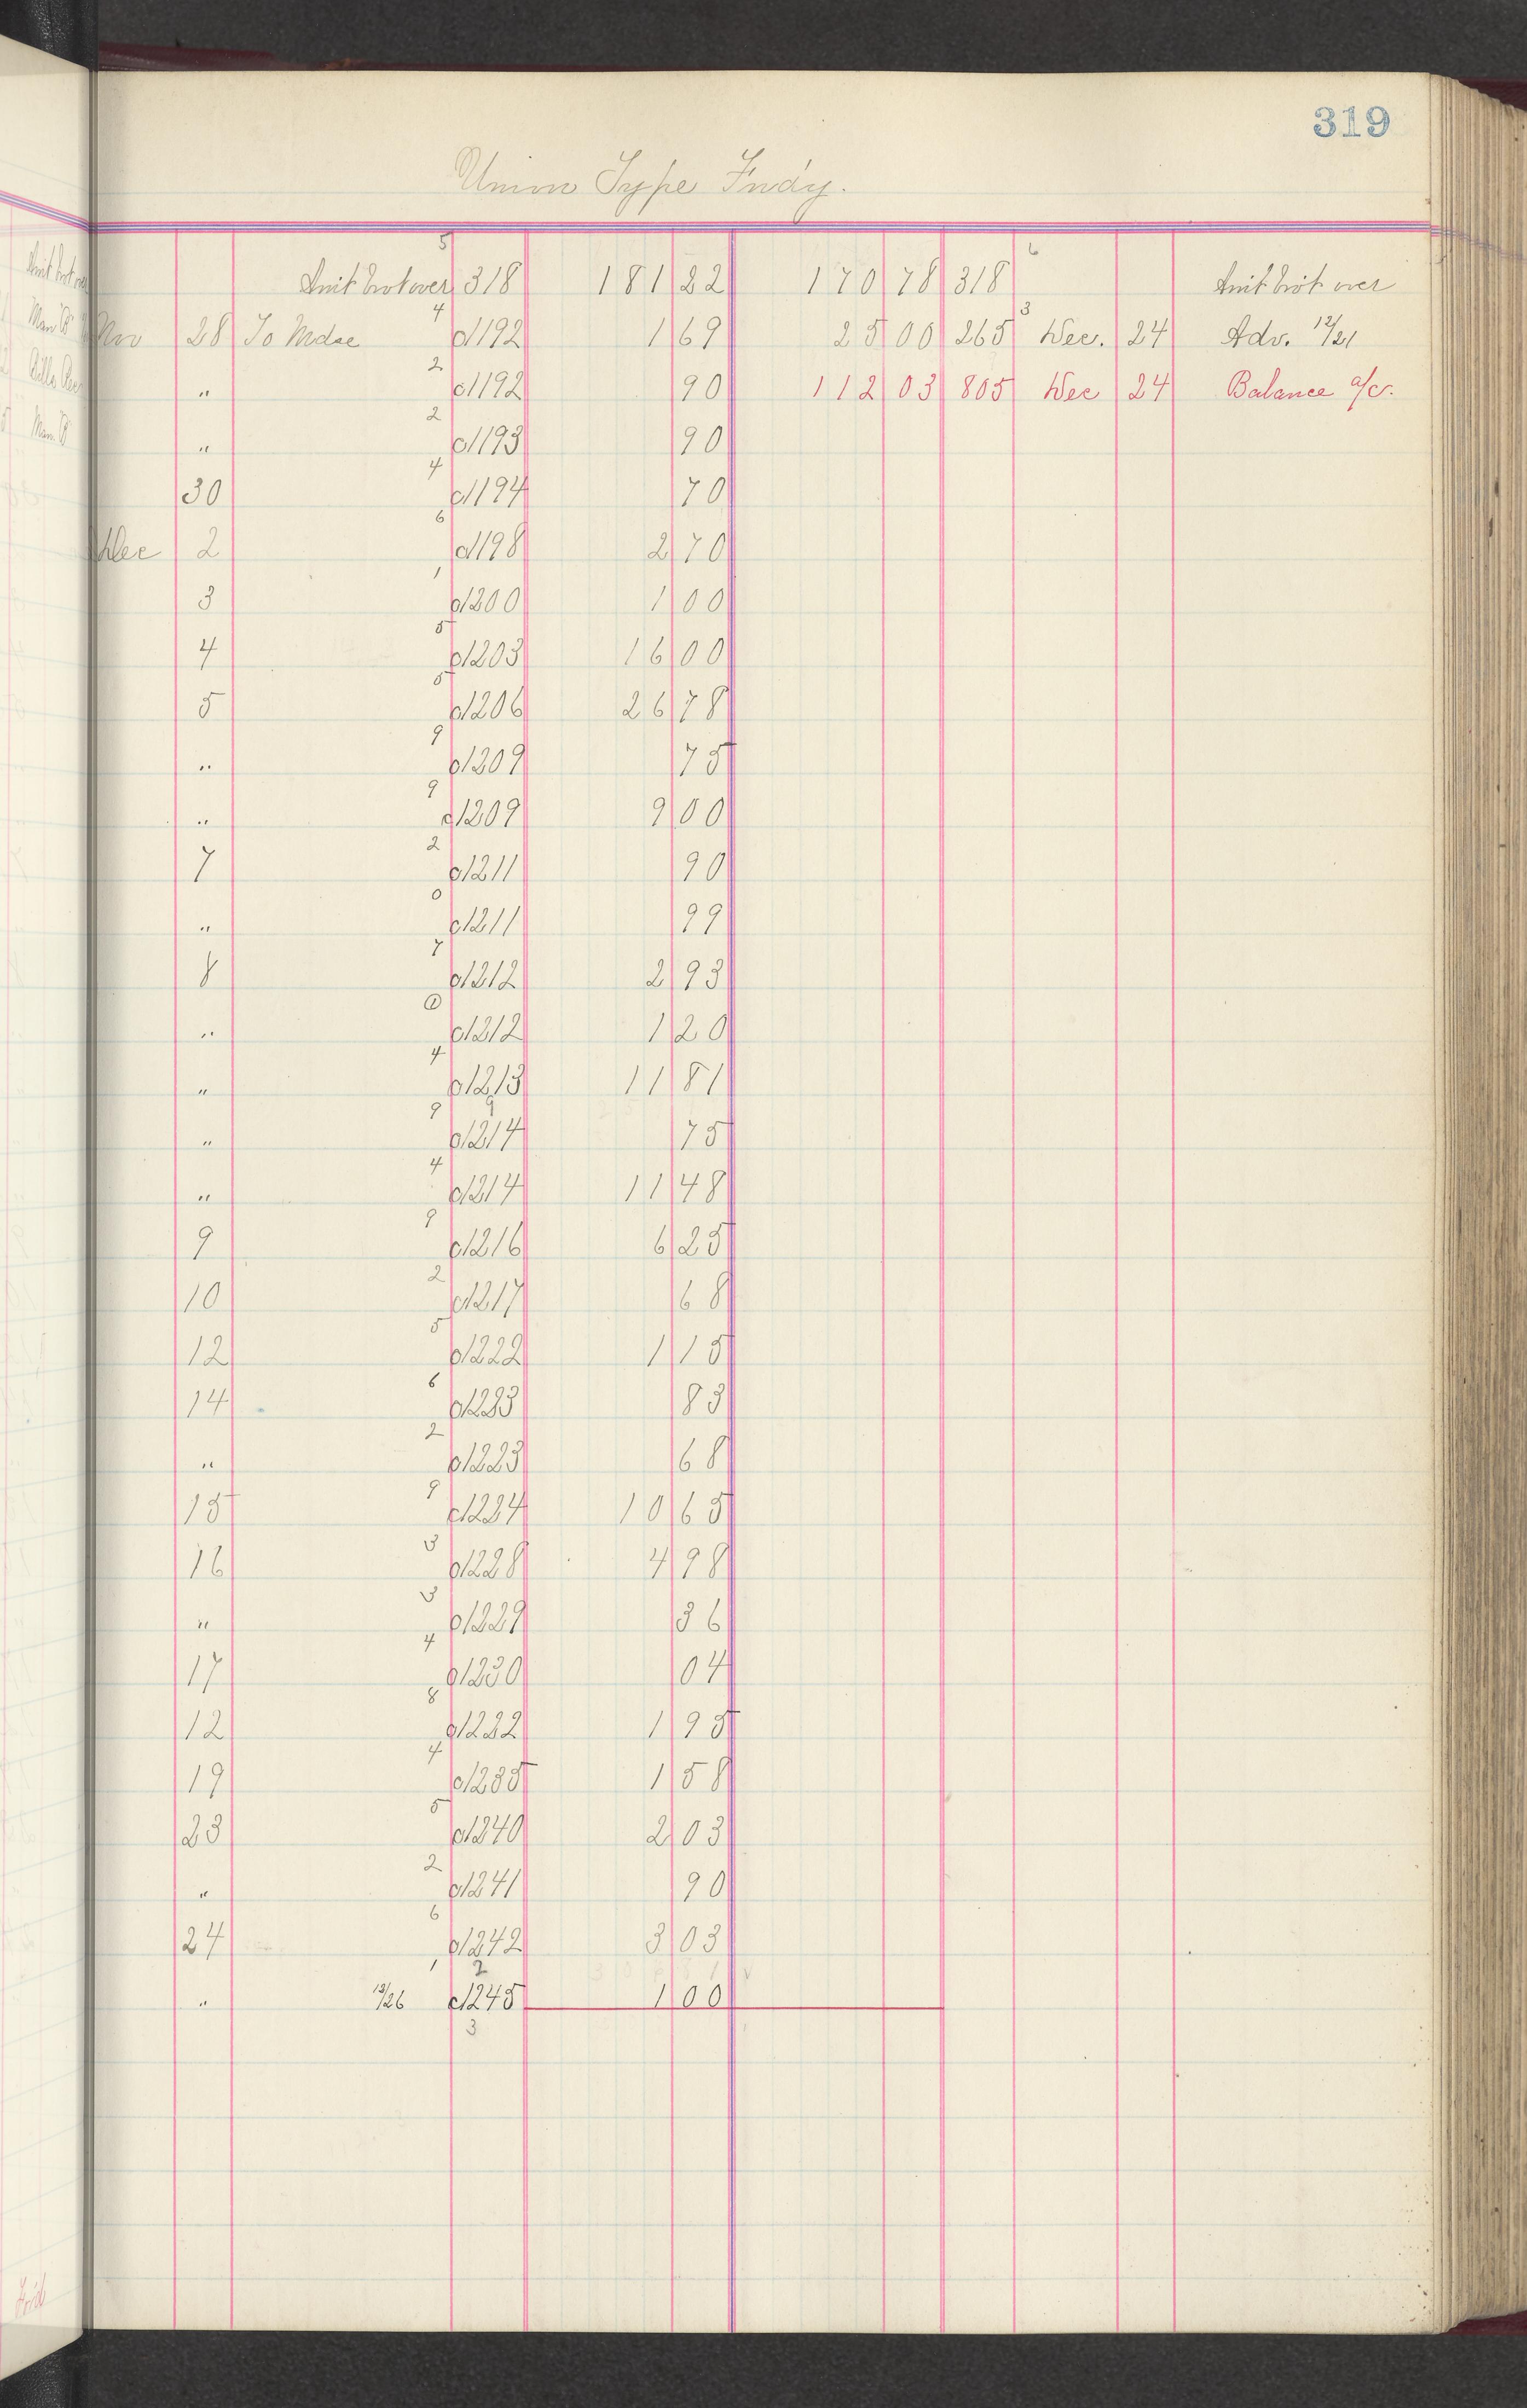 319
Union Type Fndy.
5 6
Amt brot over 318 181 22 170 78 318 Amt brot over
4 3
Nov 28 To Mdse c1192 1 69 25 00 265 Dec. 24 Adv. 12/21
2
" c1192 90 112 03 805 Dec 24 Balance a/c.
2
" c1193 90
4
30 c1194 70
6
Dec 2 c1198 2 70
1
3 c1200 1 00
5
4 c1203 16 00
5
5 c1206 26 78
9
" c1209 75
9
" c1209 9 00
2
7 c1211 90
0
" c1211 99
7
8 c1212 2 93
0
" c1212 1 20
4
" c1213 11 81
9 9
" c1214 75
4
" c1214 11 48
9
9 c1216 6 25
2
10 c1217 68
5
12 c1222 1 15
6
14 c1223 83
2
" c1223 68
9
15 c1224 10 65
3
16 c1228 4 98
3
" c1229 36
4
17 c1230 04
8
12 c1232 1 95
4
19 c1235 1 58
5
23 c1240 2 03
2
" c1241 90
6
24 c1242 3 03
1 2
" 12/26 c1245 1 00
3
Man
Man
Ford